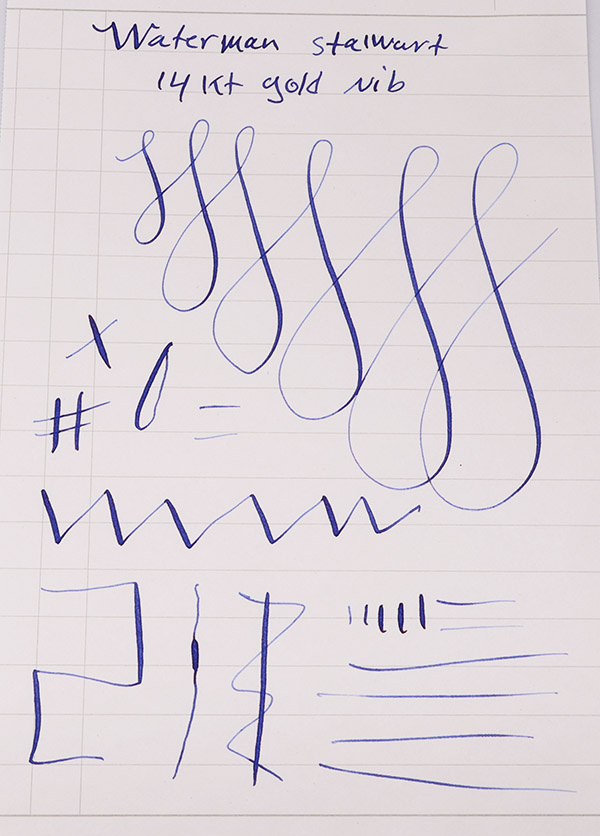 Waterman stalwart
14 Kt gold nib